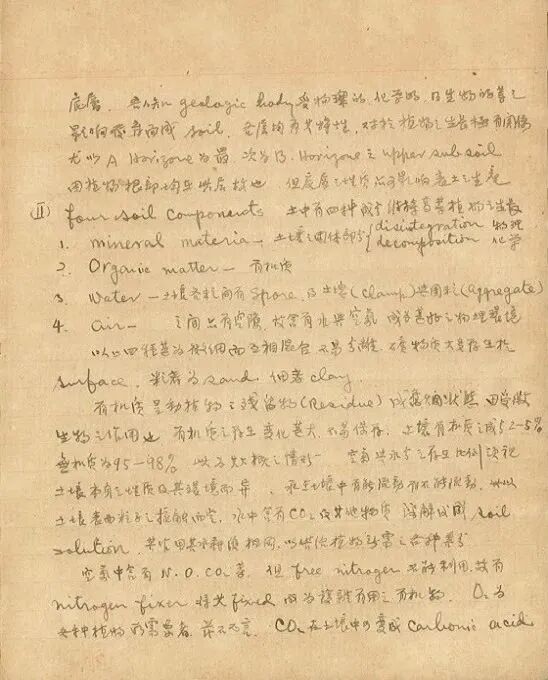 底層. 吾人知 geologic body 受物理的, 化學的, 及生物的等之
影響 而成 soil. 各層均有其特性, 对於植物之生長極有関係
尤以 A Horizone 為最, 次為 B. Horizone 之 upper subsoil
因植物根部均至此层故也 但底层之性质亦可影响表土之生产
(II) four soil components 土中有四种成分 植物之生長
1. mineral materia — 土壤之固体部分 { disintegration 物理 decomposition 化学
2. Organic matter — 有机质
3. Water — 土壤各粒间有 spore, 及土塊 (Clamp) 與团粒 (Aggregate)
4. air — 之间亦有空隙 故含有水與空氣 成为甚好之物理環境
以上四種甚为微细而互相混合 不易分離. 礦物质大多存在於
surface, 粗者为 sand, 细者 clay.
有机质是動植物之残留物 (Residue) 成腐烂状態 因受微
生物之作用也 有机质之存在变化甚大, 不易保存. 土壤有机质之成 2-5%
無机质为 95-98% 此为大概之情形 空氣與水分之存在比例須視
土壤本有之性质及其環境而异. 水在土壤中有能流动有不能流动,
土壤表面粒子之接触而定. 水中含有 CO₂ 及其他物质 溶解 soil
solution, 植物所需之各种养分
空氣中含有 N. O. CO₂ 等. 但 free nitrogen 不能利用, 故有
nitrogen fixer 将其 fixed 成为複雜有用之有机物. O₂ 为
各种植物所需要者, 故不言. CO₂ 在土壤中可变成 carbonic acid